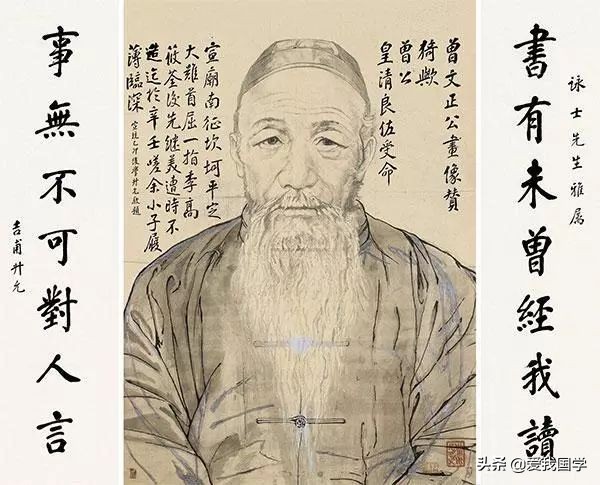 詠士先生雅属
書有未曾經我讀
曾文正公畫像賛
猗歟
曾公
皇清良佐受命
宣廟南征坎坷平定
大難首屈一指李高
筱荃後先継美遭時不
造迄於辛壬嗟余小子履
薄臨深
宣統乙卯後學升允敬題
事無不可對人言
吉甫升允
头条 @爱我国学